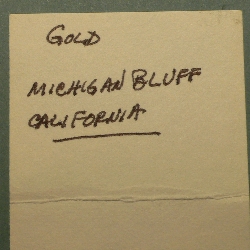 GOLD
MICHIGAN BLUFF
CALIFORNIA